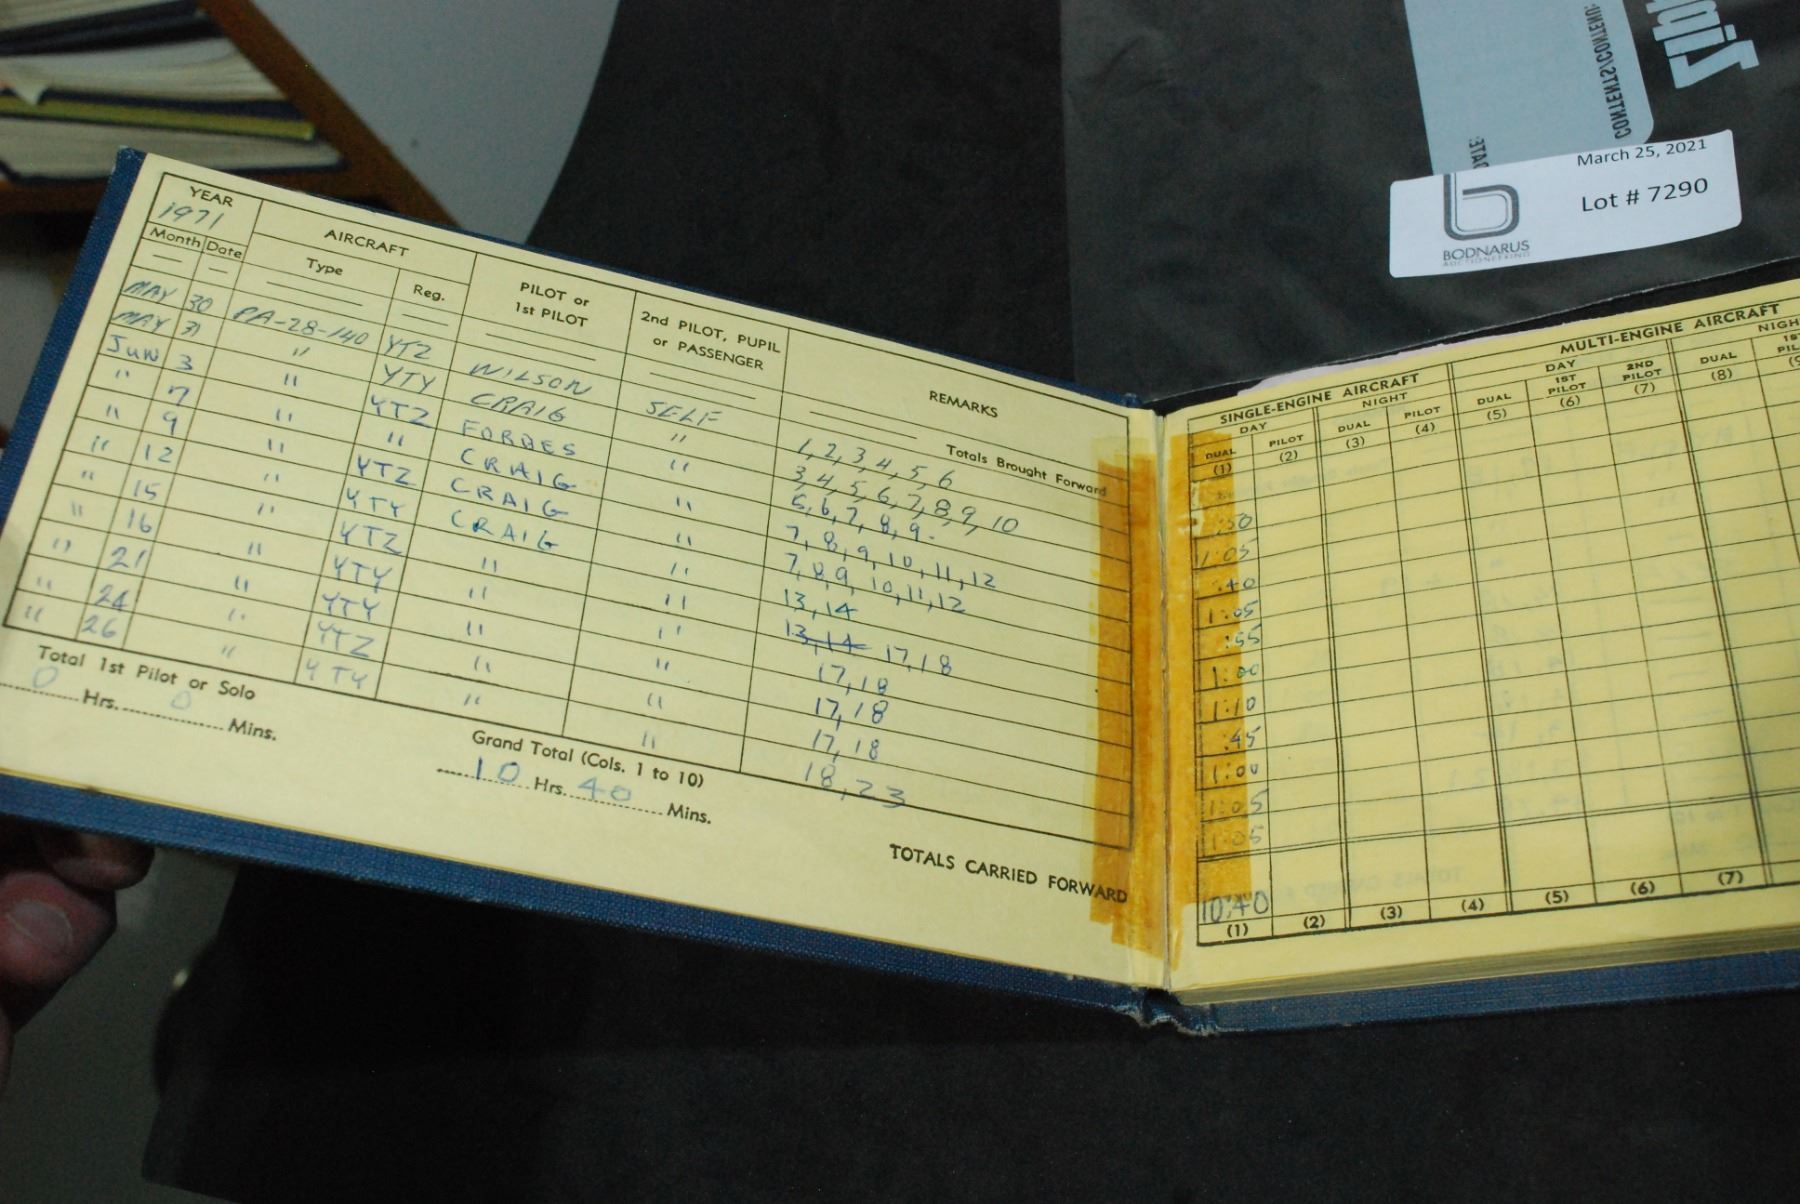 Zip
CONTENTS/CONTENU:
DATE:
March 25, 2021
Lot # 7290
BODNARUS
AUCTIONEERING
YEAR
1971
AIRCRAFT
PILOT or
1st PILOT
2nd PILOT, PUPIL
or PASSENGER
REMARKS
Month Date Type Reg.
Totals Brought Forward
MAY 30 PA-28-140 YTZ WILSON SELF 1, 2, 3, 4, 5, 6
MAY 31 " YTY CRAIG " 3, 4, 5, 6, 7, 8, 9, 10
JUN 3 " YTZ FORBES " 5, 6, 7, 8, 9.
" 7 " " CRAIG " 7, 8, 9, 10, 11, 12
" 9 " YTZ CRAIG " 7, 8, 9, 10, 11, 12
" 12 " YTY CRAIG " 13, 14
" 15 " YTZ " " 13, 14 17, 18
" 16 " YTY " " 17, 18
" 21 " YTY " " 17, 18
" 24 " YTZ " " 17, 18
" 26 " YTY " " 18, 23
Total 1st Pilot or Solo
0 Hrs. 0 Mins.
Grand Total (Cols. 1 to 10)
10 Hrs. 40 Mins.
TOTALS CARRIED FORWARD
SINGLE-ENGINE AIRCRAFT
MULTI-ENGINE AIRCRAFT
DAY NIGHT DAY NIGH
DUAL PILOT DUAL PILOT DUAL 1ST PILOT 2ND PILOT DUAL 1S PIL
(1) (2) (3) (4) (5) (6) (7) (8) (9
:50
1:05
:40
1:05
:55
1:00
1:10
:45
1:00
1:05
1:05
10:40
(1) (2) (3) (4) (5) (6) (7)